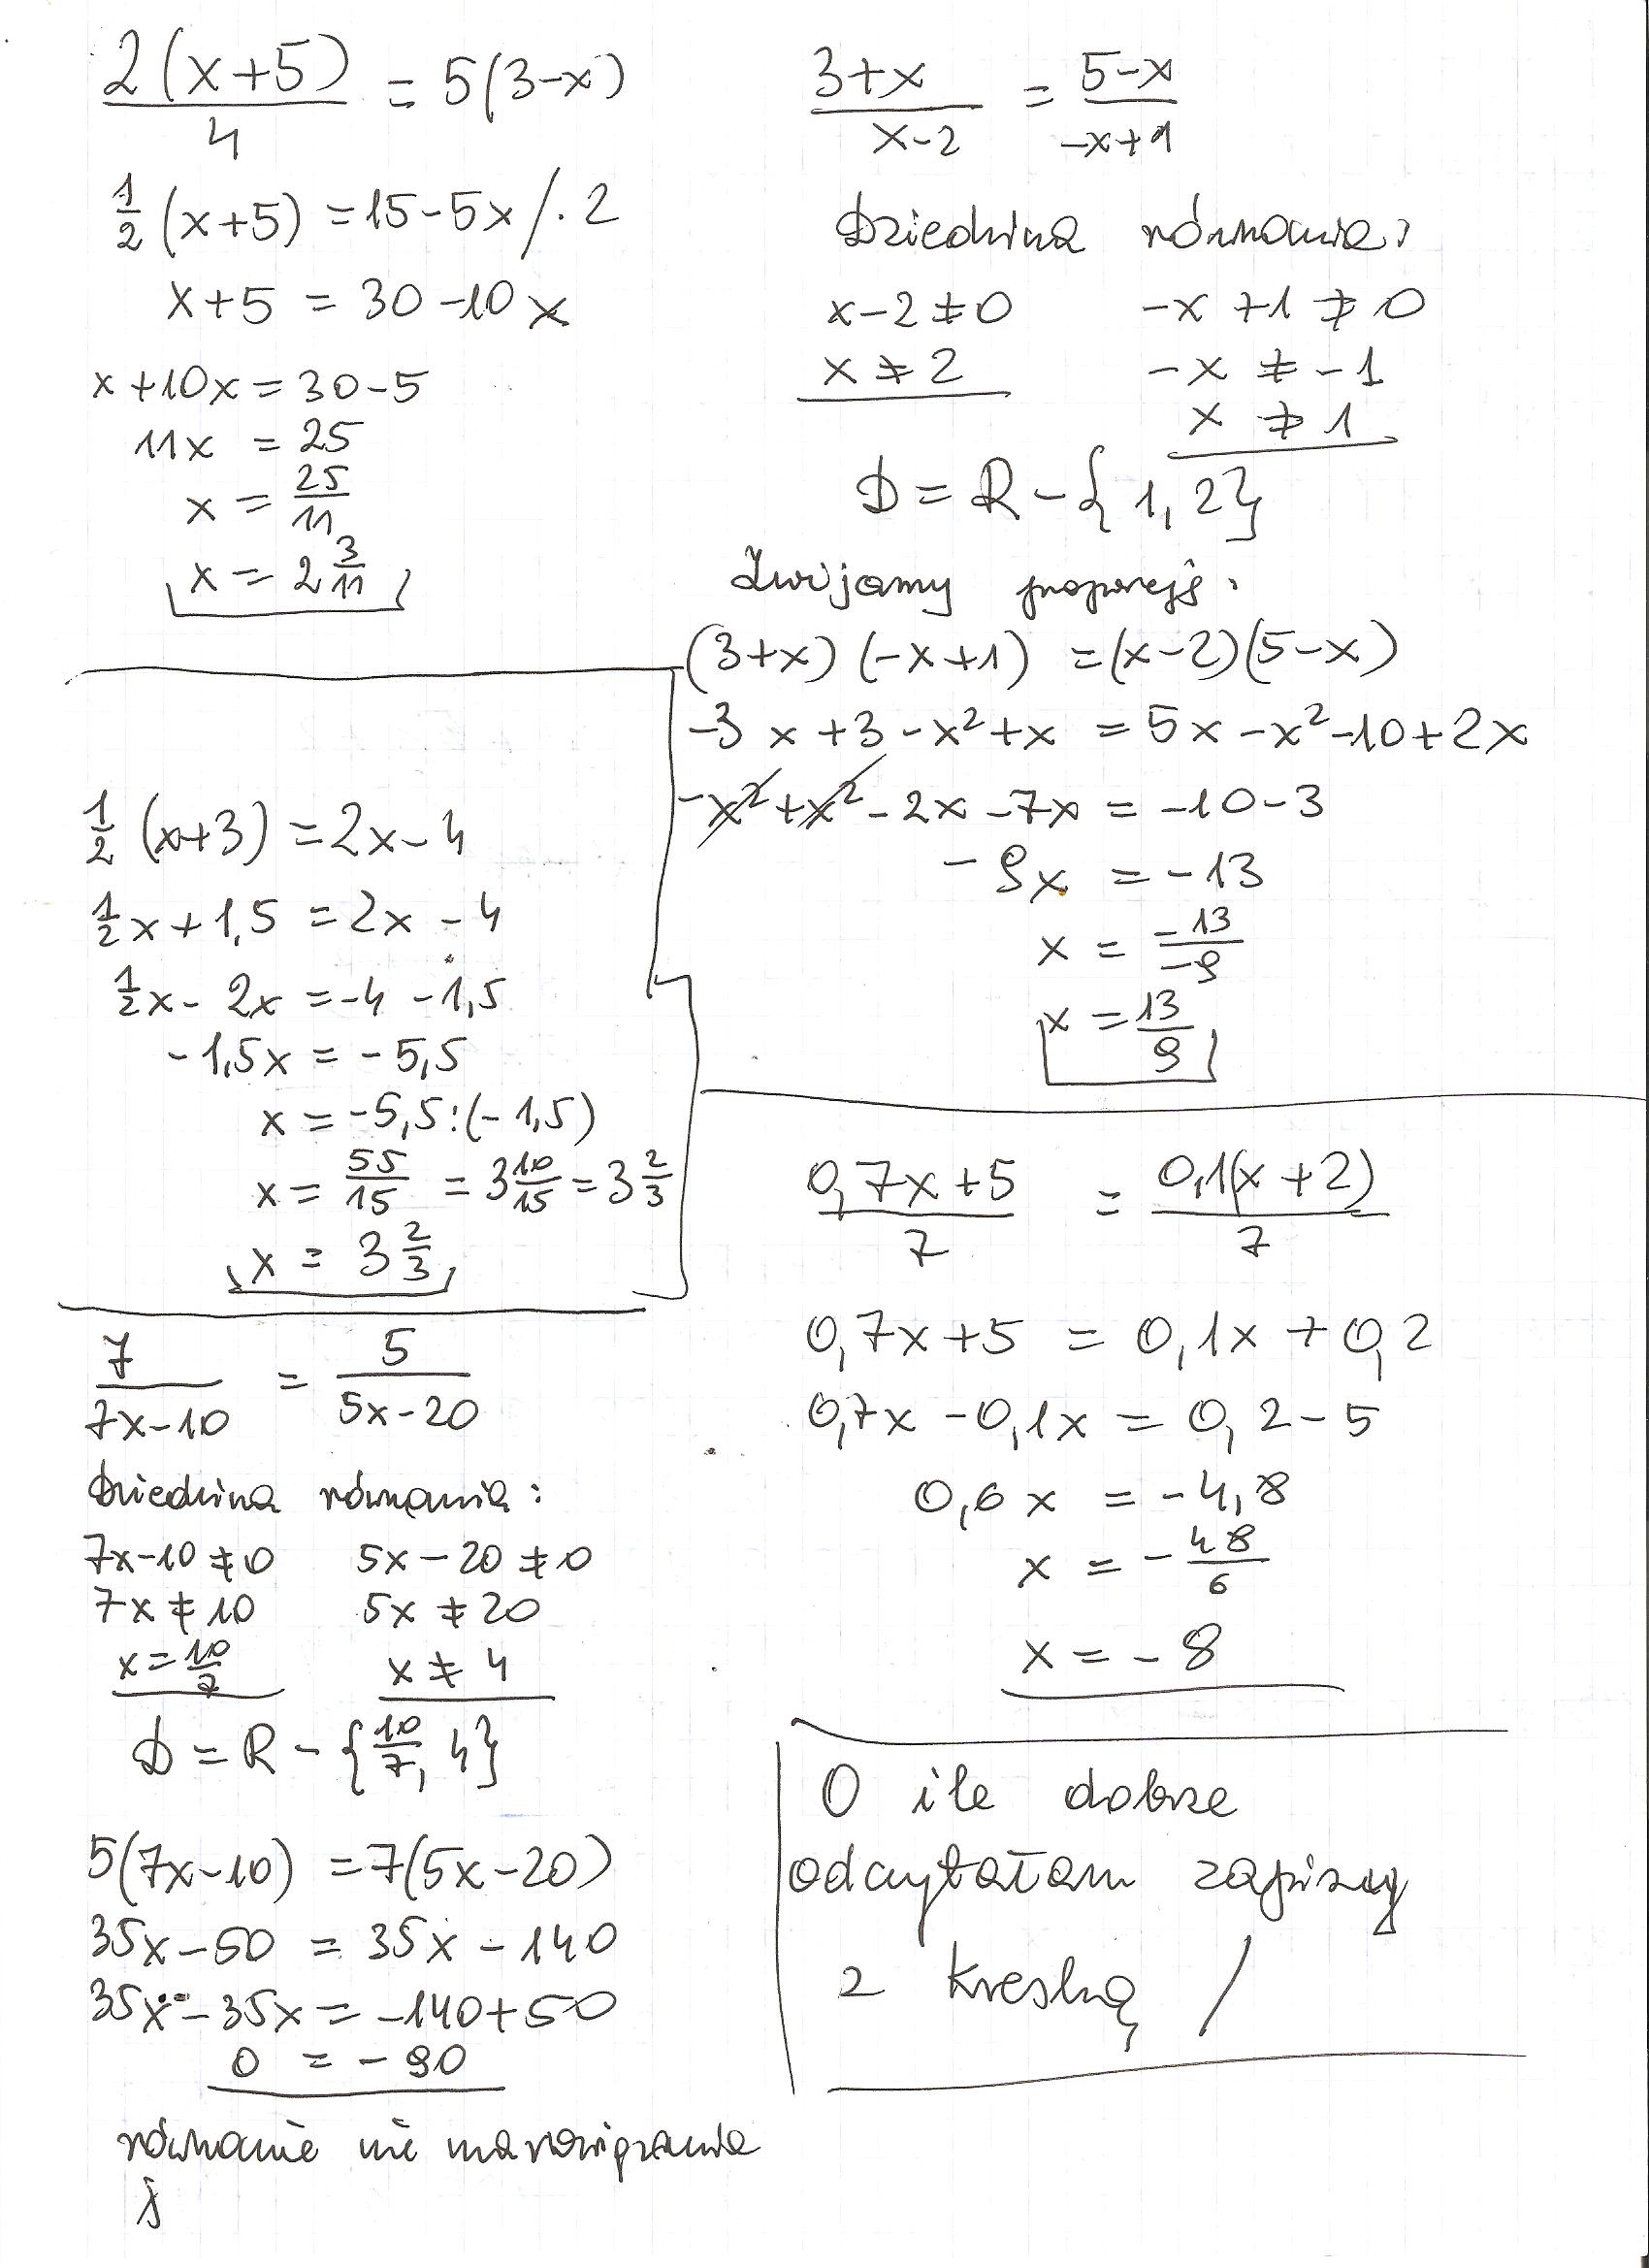 2(x+5)/4 = 5(3-x)
1/2 (x+5) = 15-5x /·2
x+5 = 30-10x
x+10x = 30-5
11x = 25
x = 25/11
x = 2 3/11
1/2 (x+3) = 2x-4
1/2 x+1,5 = 2x-4
1/2 x - 2x = -4 -1,5
-1,5x = -5,5
x = -5,5:(-1,5)
x = 55/15 = 3 10/15 = 3 2/3
x = 3 2/3
7/(7x-10) = 5/(5x-20)
Dziedzina równania:
7x-10≠0 5x-20≠0
7x≠10 5x≠20
x=10/7 x≠4
D = R - {10/7, 4}
5(7x-10) = 7(5x-20)
35x-50 = 35x-140
35x-35x = -140+50
0 = -90
równanie nie ma rozwiązania
(3+x)/(x-2) = (5-x)/(-x+1)
Dziedzina równania:
x-2≠0 -x+1≠0
x≠2 -x≠-1
x≠1
D = R - {1, 2}
proporcję:
(3+x)(-x+1) = (x-2)(5-x)
-3x+3-x²+x = 5x-x²-10+2x
-x²+x²-2x-7x = -10-3
-9x = -13
x = -13/-9
x = 13/9
(0,7x+5)/7 = 0,1(x+2)/7
0,7x+5 = 0,1x+0,2
0,7x-0,1x = 0,2-5
0,6x = -4,8
x = -48/6
x = -8
O ile dobrze
odczytałam zapisy
z kreską /